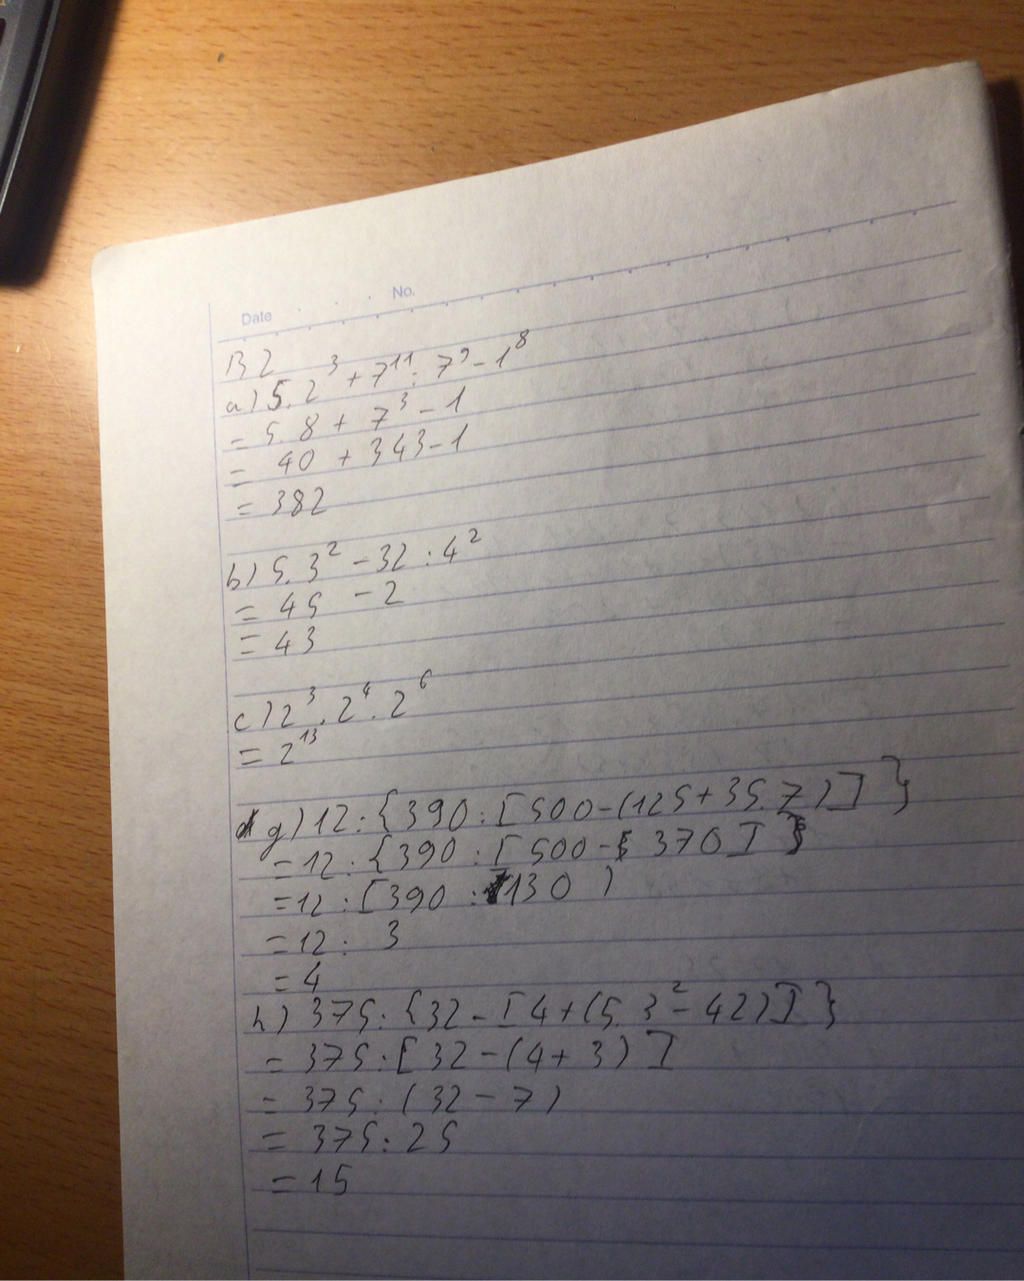 Date No.
B2
a) 5.2³ + 7¹¹ : 7⁹ - 1⁸
= 5.8 + 7³ - 1
= 40 + 343 - 1
= 382
b) 5.3² - 32 : 4²
= 45 - 2
= 43
c) 2³.2⁴.2⁶
= 2¹³
g) 12 : {390 : [500 - (125 + 35.7)]}
= 12 : {390 : [500 - 370]}
= 12 : [390 : 130)
= 12 : 3
= 4
h) 375 : {32 - [4 + (5.3² - 42)]}
= 375 : [32 - (4 + 3)]
= 375 : (32 - 7)
= 375 : 25
= 15